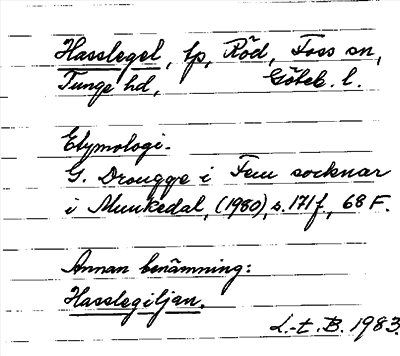 Hasslegel, tp, Röd, Foss sn,
Tunge hd, Göteb. l.
Etymologi.
G. Drougge i Fem socknar
i Munkedal, (1980), s. 171 f, 68 F.
Annan benämning:
Hasslegiljan.
L-t. B. 1983.